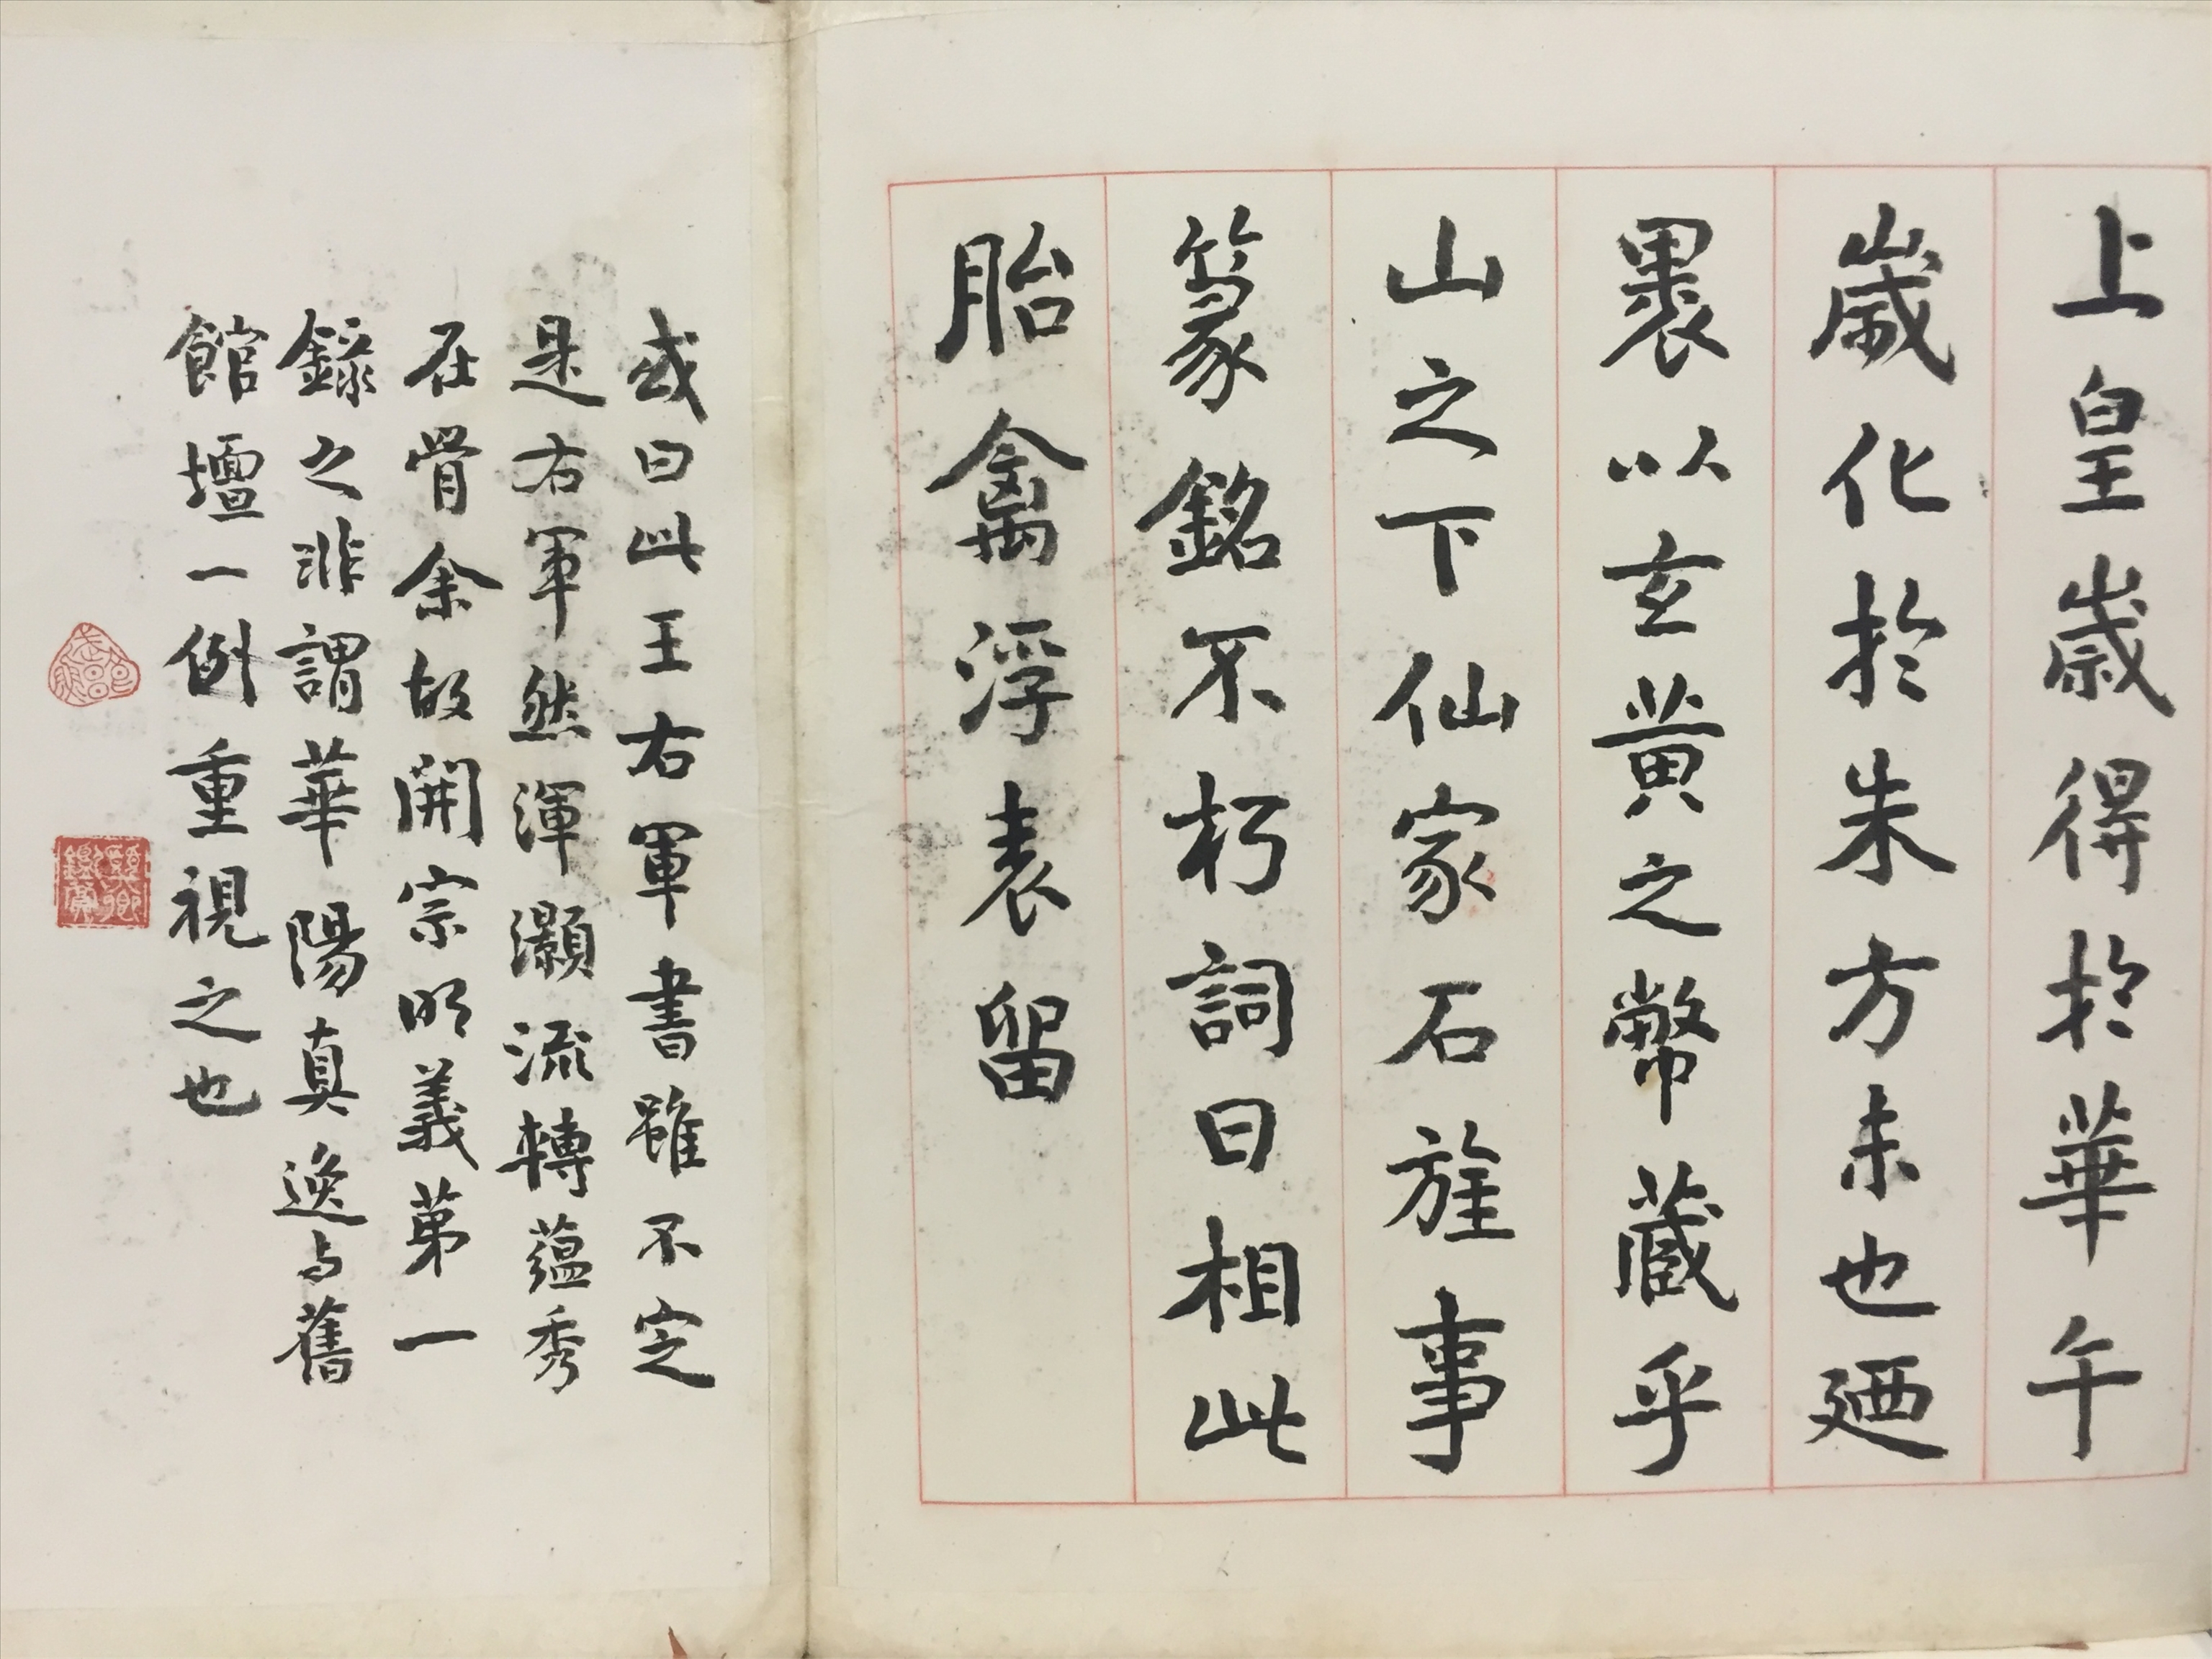 上皇歲得於華午
歲化於朱方未也廼
裹以玄黃之幣藏乎
山之下仙家石旌事
篆銘不朽詞曰相此
胎禽浮表留
或曰此王右軍書雖不定
是右軍然渾灝流轉蘊秀
在骨余故開宗明義第一
錄之非謂華陽真逸与舊
館壇一例重視之也